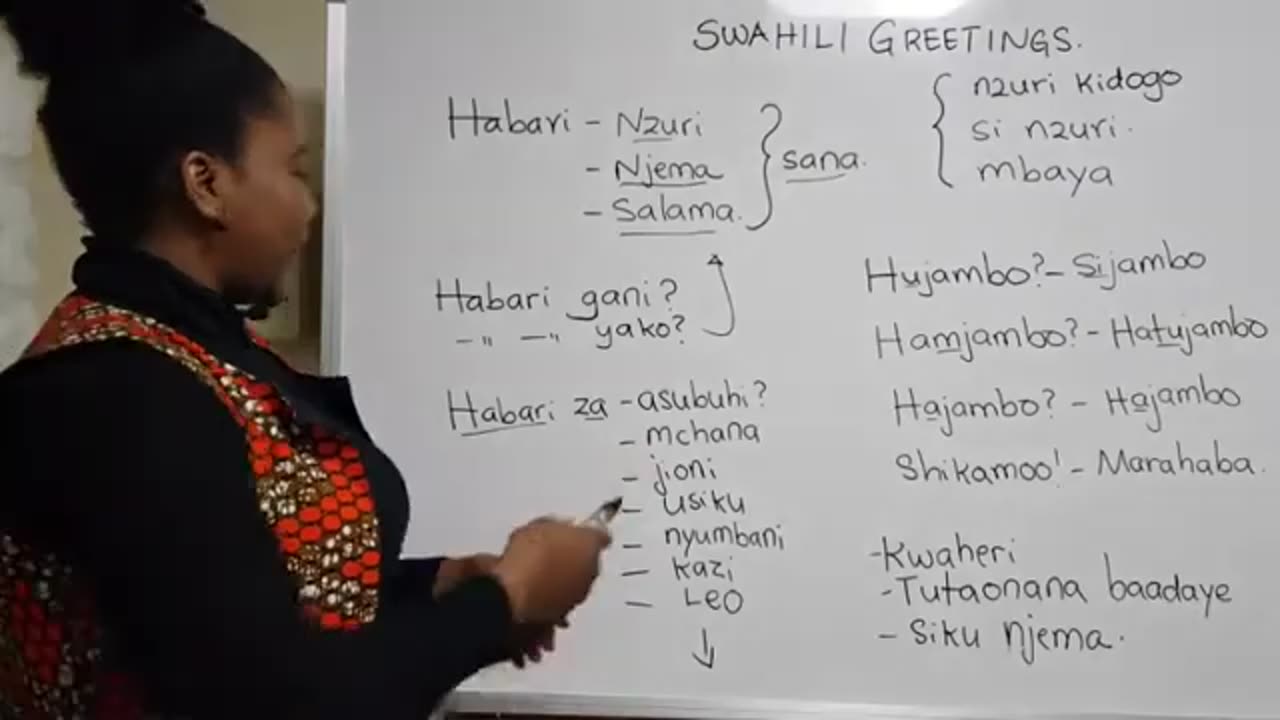 SWAHILI GREETINGS.
Habari - Nzuri
- Njema
- Salama.
} sana.
{ nzuri kidogo
si nzuri.
mbaya
Habari gani?
-"- -"- yako?
Habari za - asubuhi?
- mchana
- jioni
- usiku
- nyumbani
- Kazi
- Leo
↓
Hujambo? - Sijambo
Hamjambo? - Hatujambo
Hajambo? - Hajambo
Shikamoo! - Marahaba.
- Kwaheri
- Tutaonana baadaye
- Siku njema.